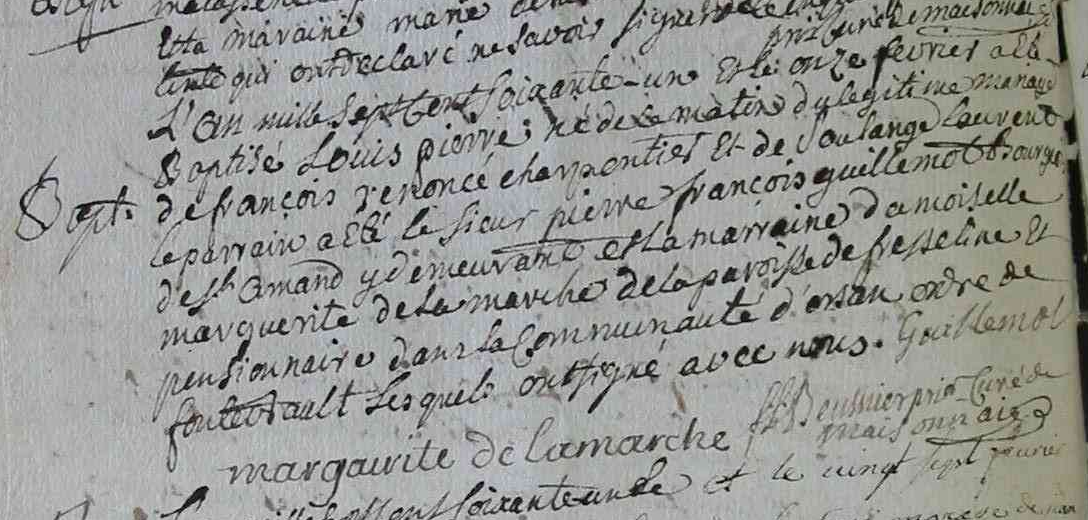 Et la maraine marie
qui ont declaré ne savoir signer
prieur curé de maisonnais
L'an mille sept cent soixante-un Et le onze fevrier a Eté
Baptisé Louis pierre né de ce matin du legitime mariage
Bapt. de françois renoncé charpentier Et de Soulange Lauvent
le parrain a Eté le sieur pierre françois guillemot Bourgeois
de st Amand y demeurant et la marraine damoiselle
marguerite de la marche de la paroisse de fresseline Et
pensionnaire dans la Communauté d'orsan ordre de
fontevrault Lesquels ont signé avec nous. Guillemot
margairite de lamarche
prieur Curé de
maisonnais
soixante unze et le vingt sept fevrier